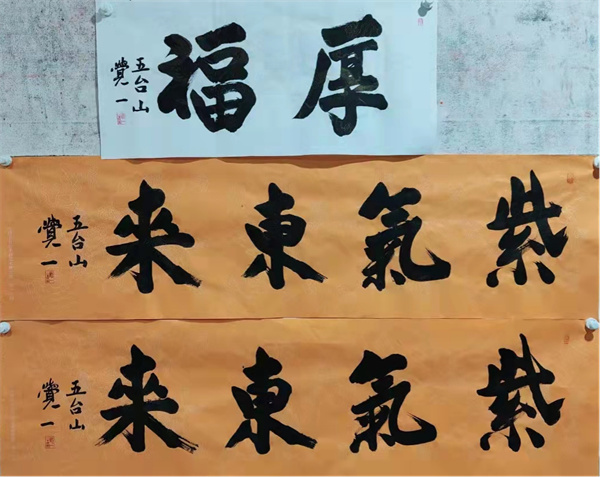 厚福
五台山
覺一
紫氣東来
五台山
覺一
紫氣東来
五台山
覺一